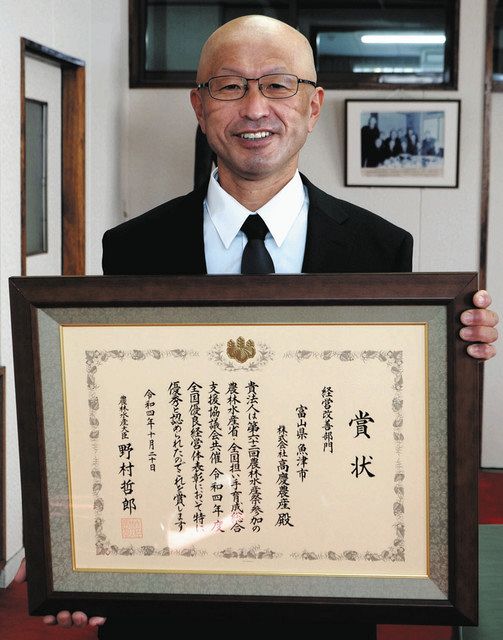 賞状
経営改善部門
富山県 魚津市
株式会社 高慶農産 殿
貴法人は第六十一回農林水産祭参加の
農林水産省・全国担い手育成総合
支援協議会共催 令和四年度
全国優良経営体表彰において特に
優秀と認められたのでこれを賞します
令和四年十月二十日
農林水産大臣 野村哲郎